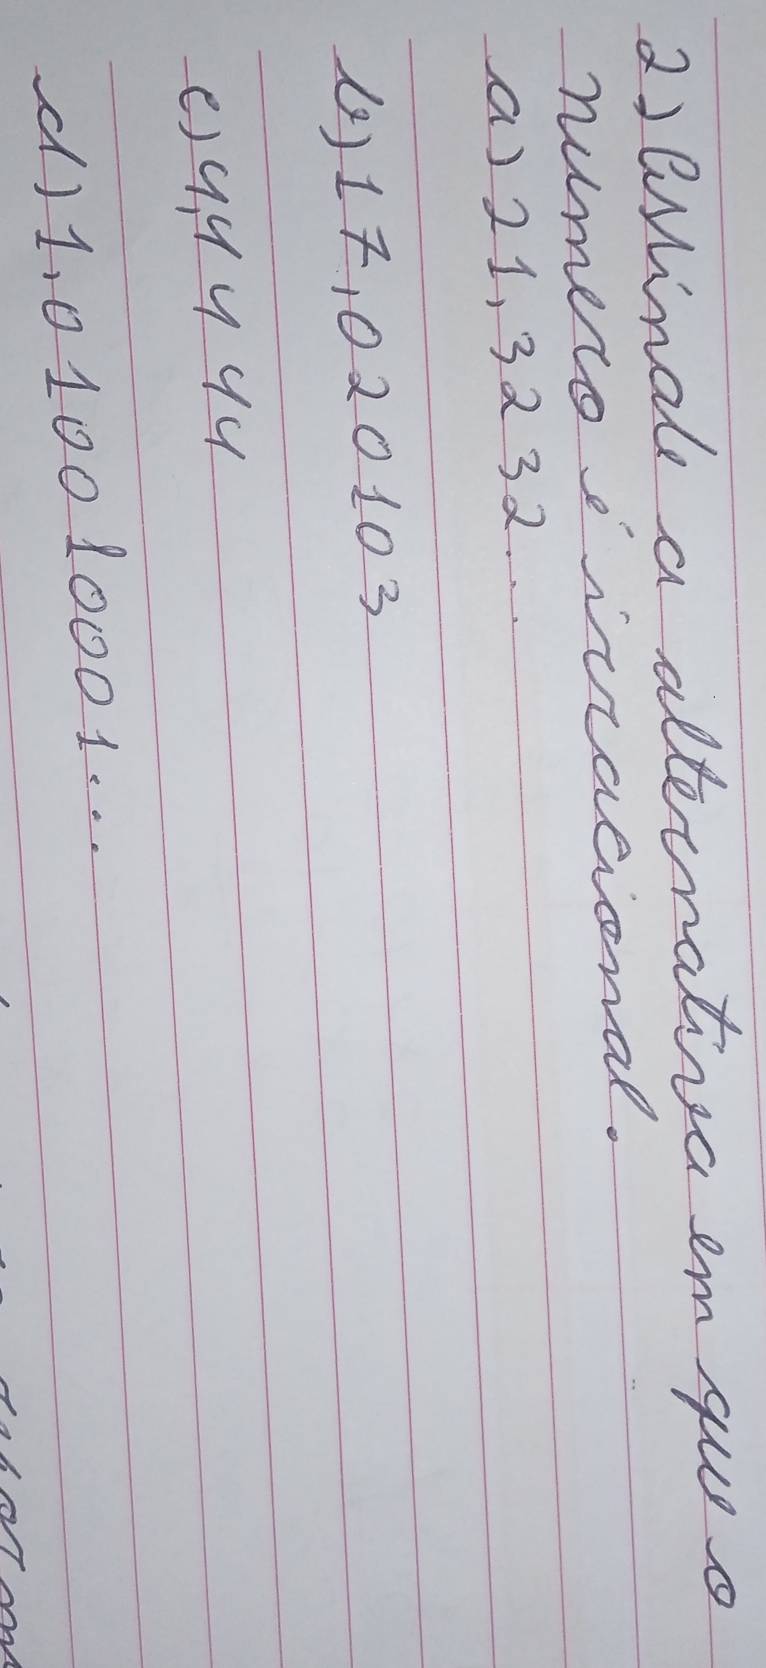 2) Assinale a alternativa em que o
número é irracional.
a) 21,3232...
b) 17,020103
c) 4,4444
d) 1,010010001...